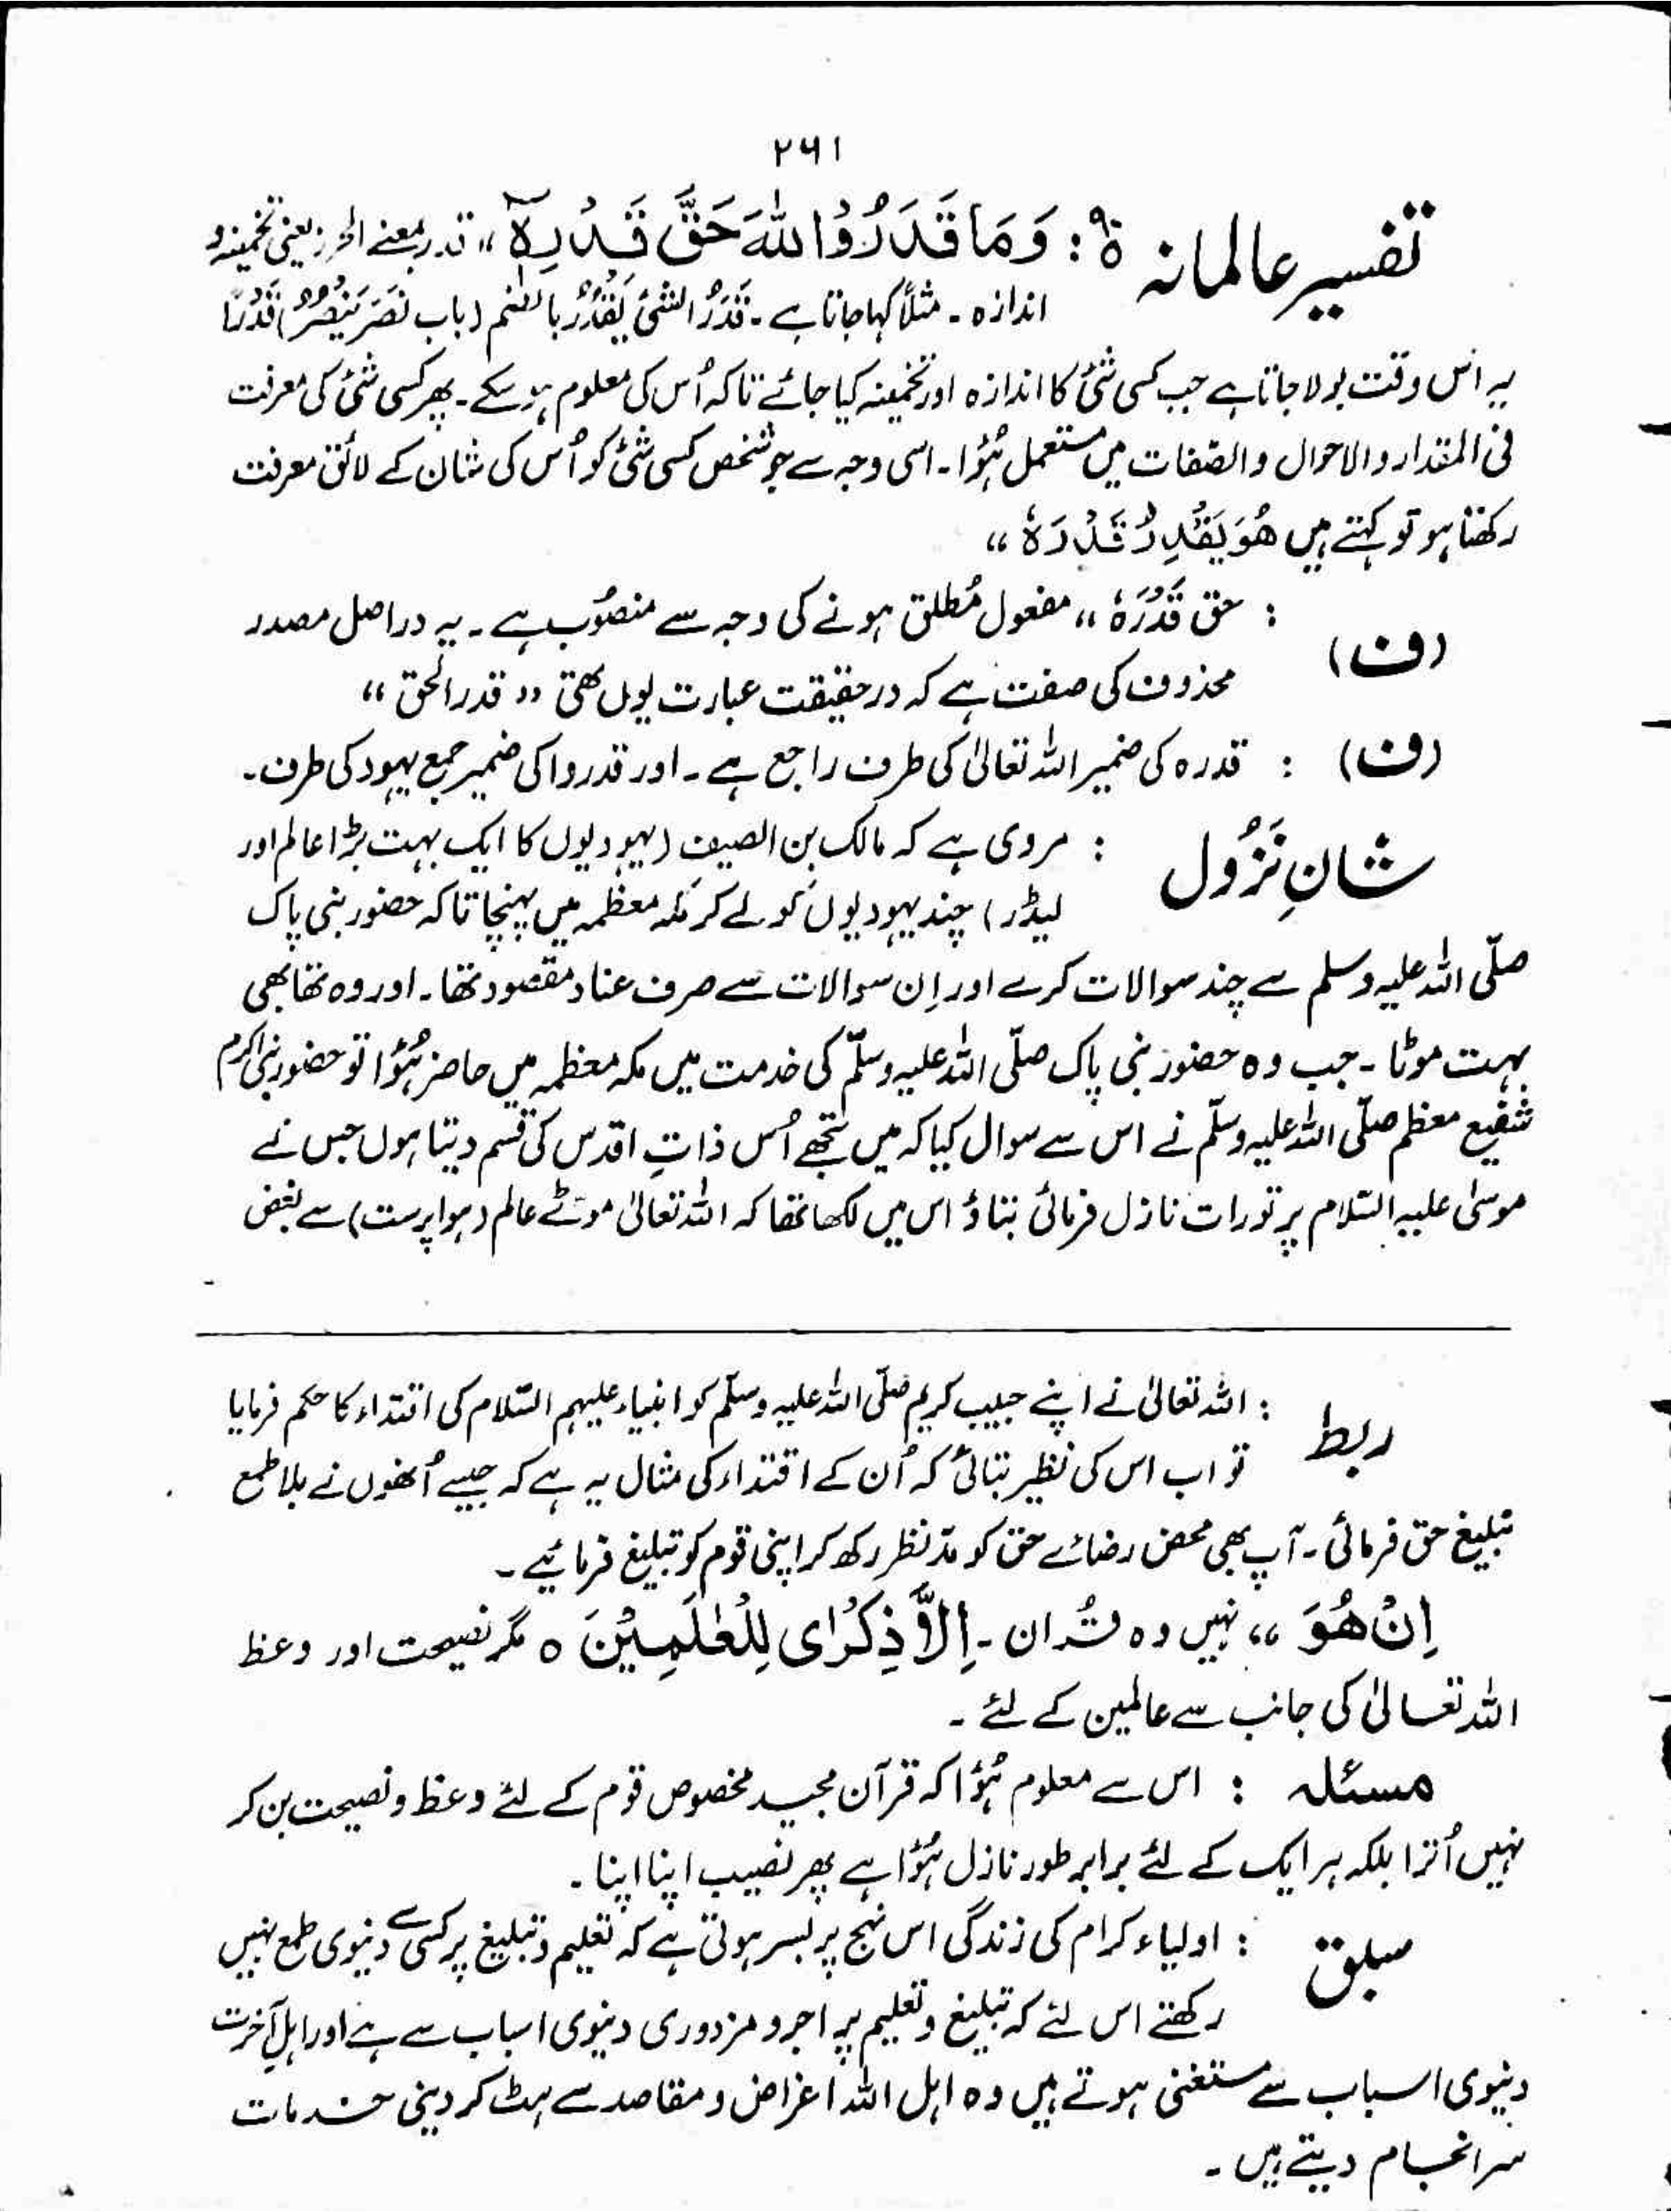 ۲۶۱
تفسیر عالمانہ : وَمَا قَدَرُوا اللّٰہَ حَقَّ قَدْرِہٖ ،، قدر بمعنے الحزر یعنی تخمینہ و
اندازہ ۔ مثلاً کہا جاتا ہے ۔ قَدَرُ الشَّیْئَ یَقْدُرُ بالضم (باب نَصَرَ یَنْصُرُ) قَدْرًا
یہ اس وقت بولا جاتا ہے جب کسی شئی کا اندازہ اور تخمینہ کیا جائے تاکہ اُس کی معلوم ہو سکے ۔ پھر کسی شئی کی معرفت
فی المقدار و الاحوال و الصفات میں مستعمل ہُؤا ۔ اسی وجہ سے جو شخص کسی شئی کو اُس کی شان کے لائق معرفت
رکھتا ہو تو کہتے ہیں ھُوَ یَقْدِرُ قَدْرَہٗ ،،
(ف) : حق قَدْرَہٗ ،، مفعول مُطلق ہونے کی وجہ سے منصُوب ہے ۔ یہ دراصل مصدر
محذوف کی صفت ہے کہ در حقیقت عبارت یوں تھی ,, قدر الحق ،،
(ف) : قدرہ کی ضمیر اللہ تعالیٰ کی طرف راجع ہے ۔ اور قدروا کی ضمیر جمع یہود کی طرف ۔
شانِ نَزُول : مروی ہے کہ مالک بن الصیف (یہودیوں کا ایک بہت بڑا عالم اور
لیڈر) چند یہودیوں کو لے کر مکہ معظمہ میں پہنچا تاکہ حضور نبی پاک
صلّی اللہ علیہ وسلم سے چند سوالات کرے اور اِن سوالات سے صرف عناد مقصود تھا ۔ اور وہ تھا بھی
بہت موٹا ۔ جب وہ حضور نبی پاک صلّی اللہ علیہ وسلّم کی خدمت میں مکہ معظمہ میں حاضر ہُؤا تو حضور نبی اکرم
شفیع معظم صلّی اللہ علیہ وسلّم نے اس سے سوال کیا کہ میں تجھے اُس ذاتِ اقدس کی قسم دیتا ہوں جس نے
موسیٰ علیہ السّلام پر تورات نازل فرمائی بتاؤ اس میں لکھا تھا کہ اللہ تعالیٰ موٹے عالم (ہوا پرست) سے بغض
ربط : اللہ تعالیٰ نے اپنے حبیب کریم صلّی اللہ علیہ وسلّم کو انبیاء علیہم السّلام کی اقتداء کا حکم فرمایا
تو اب اس کی نظیر بتائی کہ اُن کے اقتداء کی مثال یہ ہے کہ جیسے اُنھوں نے بلا طمع
تبلیغ حق فرمائی ۔ آپ بھی محض رضائے حق کو مدّنظر رکھ کر اپنی قوم کو تبلیغ فرمائیے ۔
اِنْ ھُوَ ،، نہیں وہ قرآن ۔ اِلَّا ذِکْرٰی لِلْعٰلَمِیْنَ ہ مگر نصیحت اور وعظ
اللہ تعالیٰ کی جانب سے عالمین کے لئے ۔
مسئلہ : اس سے معلوم ہُؤا کہ قرآن مجید مخصوص قوم کے لئے وعظ و نصیحت بن کر
نہیں اُترا بلکہ ہر ایک کے لئے برابر طور نازل ہُؤا ہے پھر نصیب اپنا اپنا ۔
سبق : اولیاء کرام کی زندگی اس نہج پر بسر ہوتی ہے کہ تعلیم و تبلیغ پر کسی دنیوی طمع نہیں
رکھتے اس لئے کہ تبلیغ و تعلیم پر اجر و مزدوری دنیوی اسباب سے ہے اور اہلِ آخرت
دنیوی اسباب سے مستغنی ہوتے ہیں وہ اہل اللہ اغراض و مقاصد سے ہٹ کر دینی خدمات
سرانجام دیتے ہیں ۔